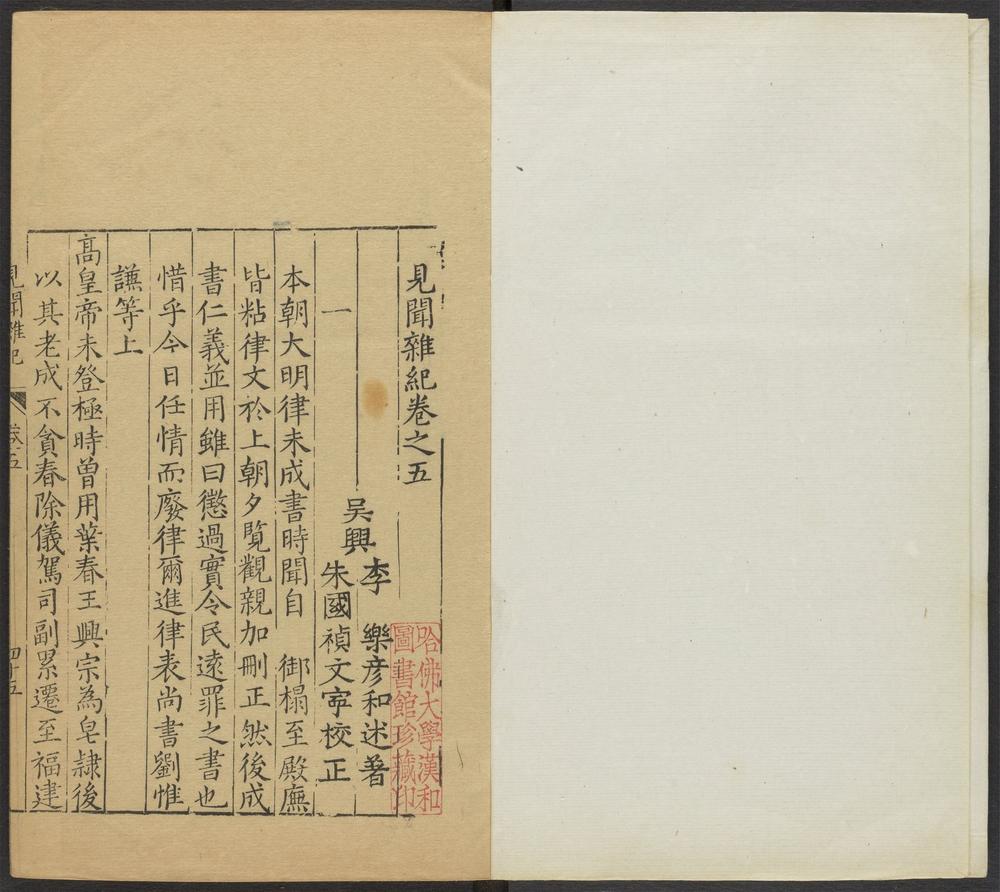 見聞雜紀卷之五
吳興李　樂彦和述著
朱國禎文寧校正
一
本朝大明律未成書時聞自　御榻至殿廡
皆粘律文於上朝夕覽觀親加刪正然後成
書仁義並用雖曰懲過實令民遠罪之書也
惜乎今日任情而廢律爾進律表尚書劉惟
謙等上
高皇帝未登極時曽用葉春王興宗為皂隸後
以其老成不貪春除儀鸞司副累遷至福建
見聞雜紀
卷五
四十五
哈佛大學漢和
圖書館珍藏印